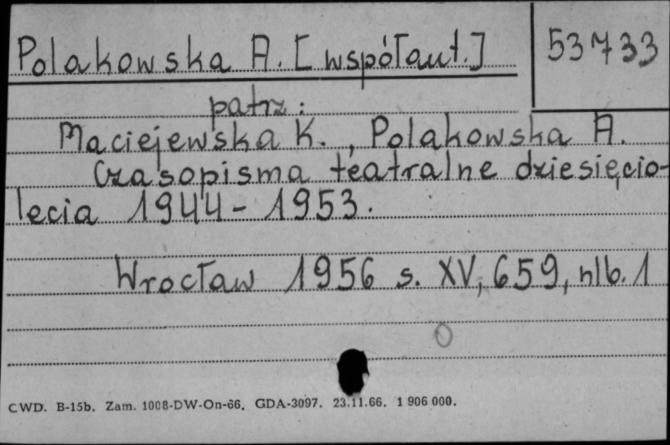 Polakowska A. [współaut.]
53733
patrz:
Maciejewska K., Polakowska A.
Czasopisma teatralne dziesięcio-
lecia 1944-1953.
Wrocław 1956 s. XV, 659, nlb. 1
CWD. B-15b. Zam. 1008-DW-On-66. GDA-3097. 23.11.66. 1 906 000.